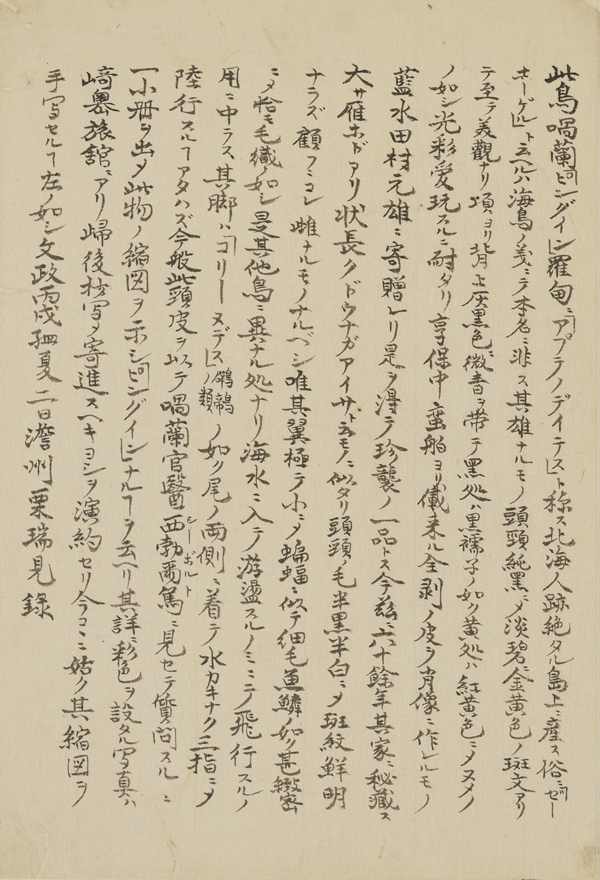 此鳥喎蘭ピングイン羅甸ニアプテノデイテスト称ス北海人跡絶タル島上ニ産ス俗ニゼー
ホーゲルト云ヘルハ海鳥ノ義ニテ本名ニ非ス其雄ナルモノ頭頸純黒ニメ淡碧ニ金黄色ノ斑文アリ
テ至テ美観ナリ項ヨリ背上灰黒色ニ微青ヲ帯テ黒処ハ黒襦子ノ如ク黄処ハ紅黄色ニメヌメノ
ノ如シ光彩愛玩スルニ耐タリ享保中蛮舶ヨリ儎来ル全剥ノ皮ヲ肖像ニ作レルモノ
藍水田村元雄ニ寄贈レリ是ヲ得テ珍襲ノ一品トス今茲ニ六十餘年其家ニ秘蔵ス
大サ雁ホドアリ状長クドウナガアイサト云モノニ似タリ頭頸ノ毛半黒半白ニメ斑紋鮮明
ナラズ顧フニコレ雌ナルモノナルベシ唯其翼極テ小ニメ蝙蝠ニ似テ細毛魚鱗ノ如ク甚緻密
ニメ恰モ毛織ノ如シ是其他鳥ニ異ナル処ナリ海水ニ入テ游盪スルノミニテ飛行スルノ
用ニ中ラス其脚ハゴリーメデス鸊鷉ノ類ノ如ク尾ノ両側ニ着テ水カキナク三指ニメ
陸行スルヿアタハズ今般此頭皮ヲ以テ喎蘭官醫西勃爾篤シーボルトニ見セテ質問スルニ
一小冊ヲ出メ此物ノ縮図ヲ示シピングインナルヿヲ云ヘリ其詳ニ彩色ヲ設タル写真ハ
﨑嶴旅舘ニアリ帰後抄写メ寄進スヘキヨシヲ演約セリ今コヽニ姑ク其縮図ヲ
手写セルヿ左ノ如シ文政丙戌孟夏二日澹州栗瑞見録